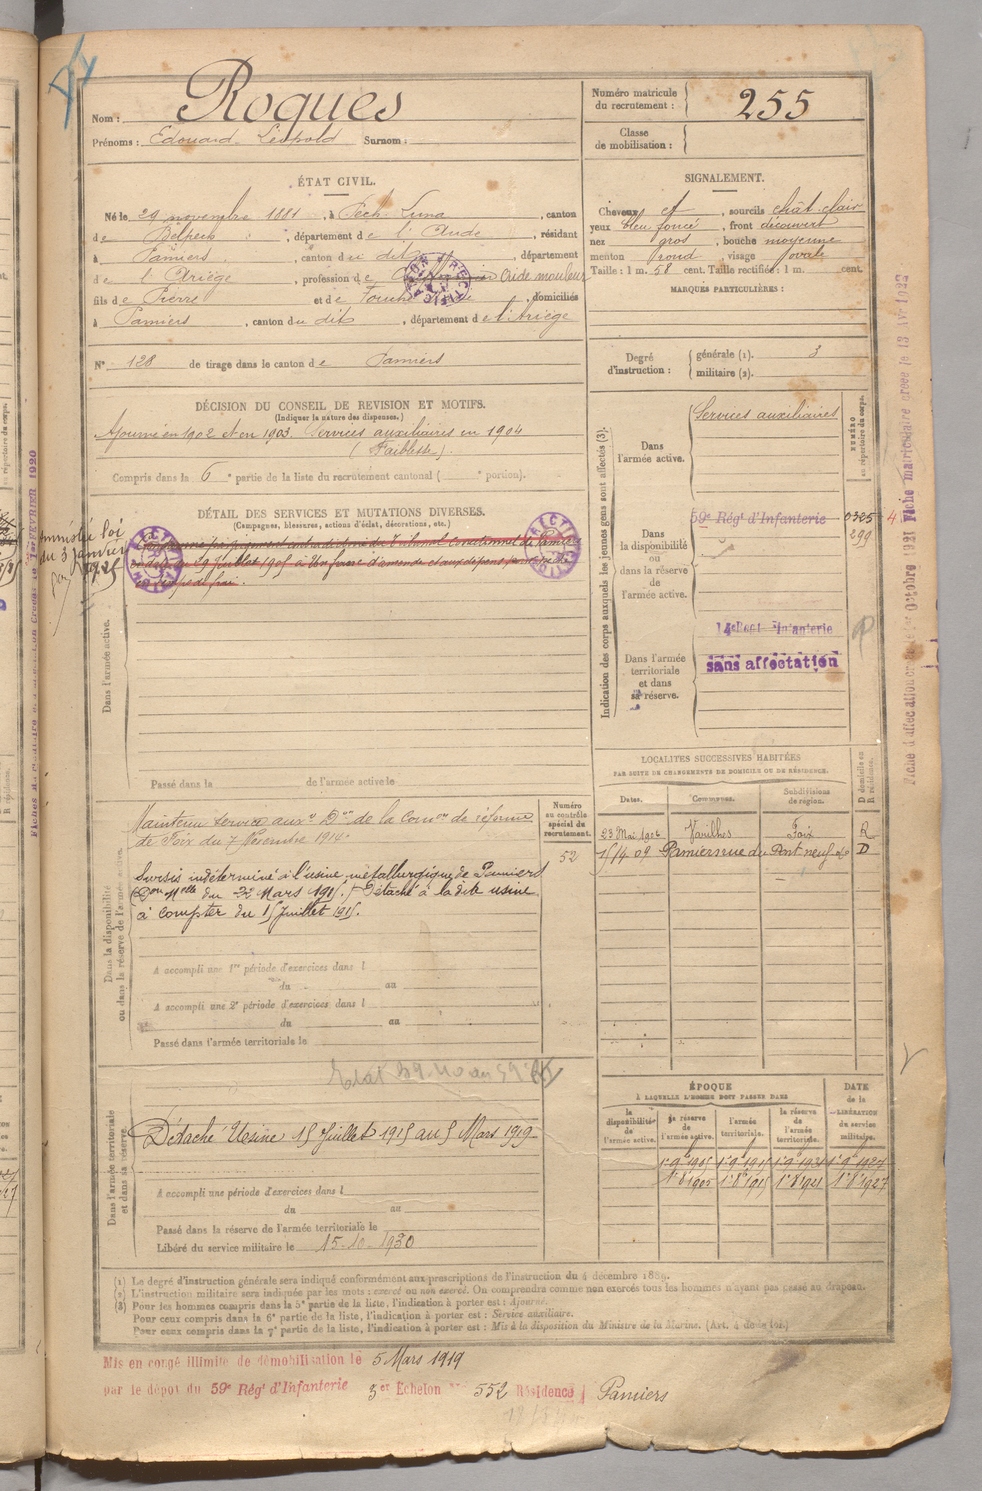 Nom : Roques
Prénoms : Edouard Léopold Surnom :
Numéro matricule du recrutement : 255
Classe de mobilisation :
ÉTAT CIVIL.
Né le 29 novembre 1881, à Pech-Luna, canton
de Belpech, département de l'Aude, résidant
à Pamiers, canton du dit, département
de l'Ariège, profession de Cride mouleur
fils de Pierre et de , domiciliés
à Pamiers, canton du dit, département de l'Ariège
N° 128 de tirage dans le canton de Pamiers
SIGNALEMENT.
Cheveux et, sourcils chât. clair
yeux bleu foncé, front découvert
nez gros, bouche moyenne
menton rond, visage ovale
Taille : 1 m. 58 cent. Taille rectifiée : 1 m. cent.
MARQUES PARTICULIÈRES :
Degré d'instruction : générale (1). 3
militaire (2).
DÉCISION DU CONSEIL DE REVISION ET MOTIFS.
(Indiquer la nature des dispenses.)
Ajourné en 1902 et en 1903. Services auxiliaires en 1904
(Faiblesse).
Compris dans la 6e partie de la liste du recrutement cantonal ( e portion).
DÉTAIL DES SERVICES ET MUTATIONS DIVERSES.
(Campagnes, blessures, actions d'éclat, décorations, etc.)
Amnistié loi
du 3 Janvier
1925
par jugement contradictoire du Tribunal Correctionnel de Pamiers
en date du 29 Juillet 1905 à 25 francs d'amende et aux dépens
Dans l'armée active.
Passé dans la de l'armée active le
Indication des corps auxquels les jeunes gens sont affectés (3).
Dans l'armée active.
Services auxiliaires
NUMÉRO au répertoire du corps.
Dans la disponibilité ou dans la réserve de l'armée active.
59e Régt d'Infanterie 0325
299
14e Regt Infanterie
Dans l'armée territoriale et dans sa réserve.
sans affectation
LOCALITÉS SUCCESSIVES HABITÉES
PAR SUITE DE CHANGEMENTS DE DOMICILE OU DE RÉSIDENCE.
Dates. Communes. Subdivisions de région. D domicile ou R résidence.
23 Mai 1906 Varilhes Foix R
15/4 09 Pamiers rue du Pont neuf D
Dans la disponibilité ou dans la réserve de l'armée active.
Numéro au contrôle spécial du recrutement.
52
Maintenu service auxre Don de la Comon de réforme
de Foix du 7 Décembre 1914.
Sursis indéterminé à l'usine métallurgique de Pamiers
(Don Melle du 22 Mars 1915.) Détaché à la dite usine
à compter du 15 Juillet 1915.
A accompli une 1re période d'exercices dans l
du au
A accompli une 2e période d'exercices dans l
du au
Passé dans l'armée territoriale le
Dans l'armée territoriale et dans sa réserve.
Détaché Usine 15 Juillet 1915 au 5 Mars 1919
A accompli une période d'exercices dans l
du au
Passé dans la réserve de l'armée territoriale le
Libéré du service militaire le 15-10-1930
ÉPOQUE
À LAQUELLE L'HOMME DOIT PASSER DANS
la disponibilité de l'armée active. la réserve de l'armée active. l'armée territoriale. la réserve de l'armée territoriale. DATE de la LIBÉRATION du service militaire.
1er 9e 1905 1er 9e 1915 1er 9e 1921 1er 9e 1927
1er 8e 1905 1er 8e 1915 1er 8e 1921 1er 8e 1927
(1) Le degré d'instruction générale sera indiqué conformément aux prescriptions de l'instruction du 4 décembre 1889.
(2) L'instruction militaire sera indiquée par les mots : exercé ou non exercé. On comprendra comme non exercés tous les hommes n'ayant pas passé au drapeau.
(3) Pour les hommes compris dans la 5e partie de la liste, l'indication à porter est : Ajourné.
Pour ceux compris dans la 6e partie de la liste, l'indication à porter est : Service auxiliaire.
Pour ceux compris dans la 7e partie de la liste, l'indication à porter est : Mis à la disposition du Ministre de la Marine. (Art. 4 de la loi.)
Mis en congé illimité de démobilisation le 5 Mars 1919
par le dépôt du 59e Régt d'Infanterie 3er Échelon N° 552 Résidence Pamiers